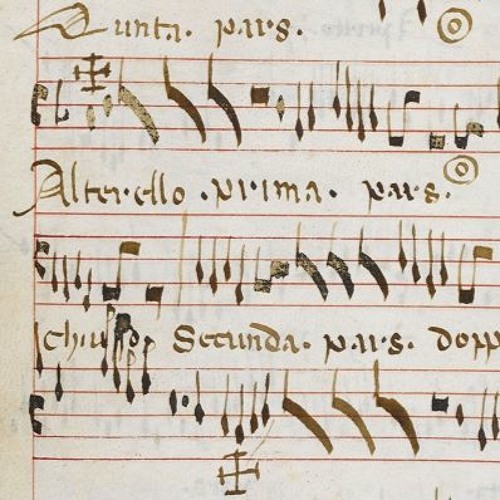 Quinta. pars.
Alterello. prima. pars.
chiusso Secunda. pars. dopp